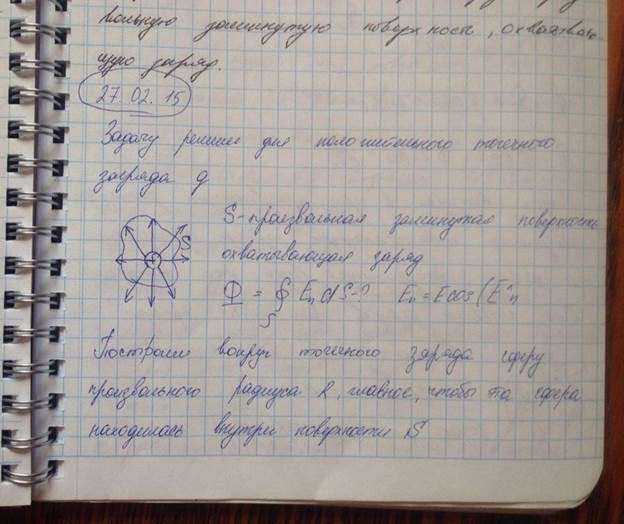 льную замкнутую поверхность, охватываю-
щую заряд.
27.02.15
Задачу решаем для положительного точечного
заряда q
S-произвольная замкнутая поверхность
S
охватывающая заряд
Ф = ∮ En dS-? En = E cos (E^n
S
Построим вокруг точечного заряда сферу
произвольного радиуса R, главное, чтобы та сфера
находилась внутри поверхности S